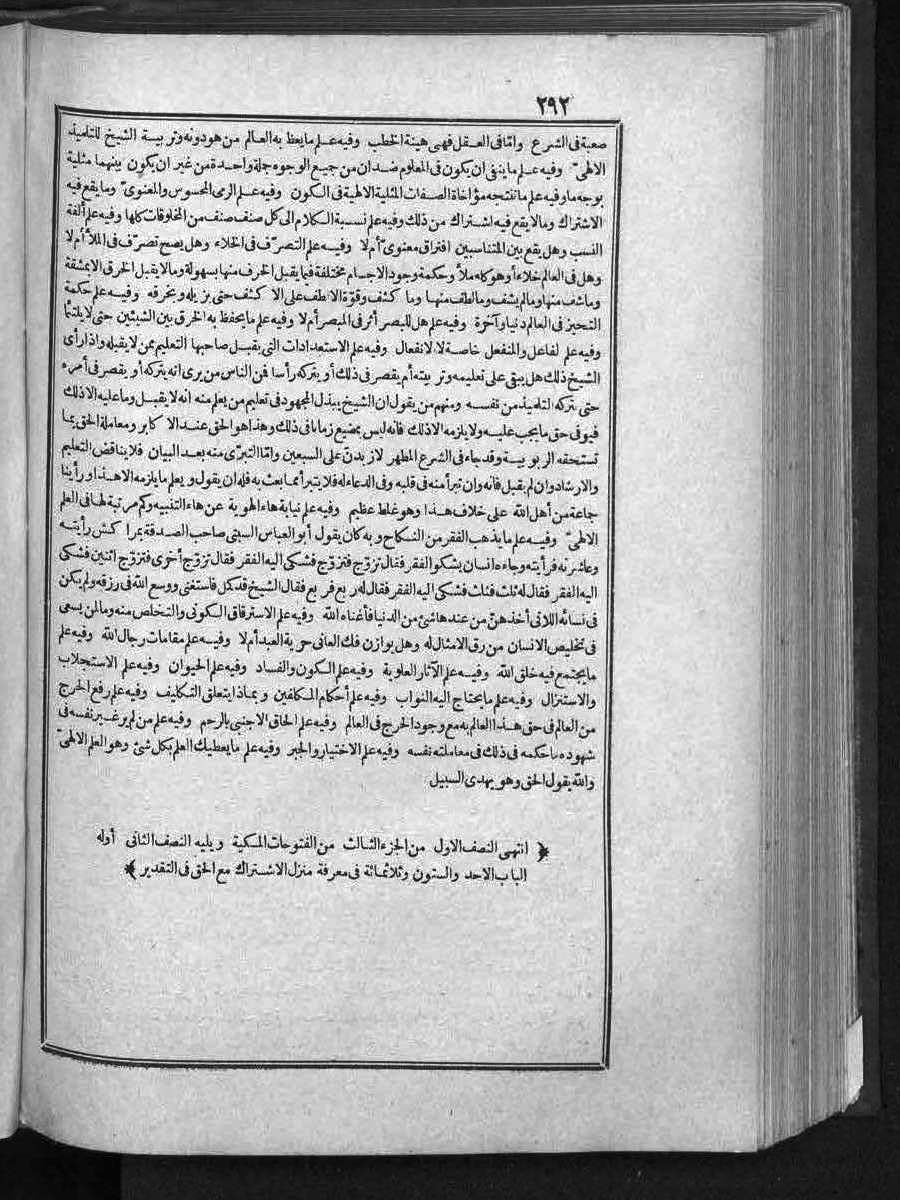 ٢٩٢
صعبة فى الشرع وامّا فى العقل فهى هينة الخطب وفيه علم ما يعظ به العالم من هو دونه وتربية الشيخ للتلميذ
الالهىّ وفيه علم ما ينفى ان يكون فى المعلوم ضدان من جميع الوجوه جملة واحدة من غير ان يكون بينهما مثلية
بوجه ما وفيه علم ما تنتجه مؤاخاة الصفات المثلية الالهية فى الكون وفيه علم الرمى المحسوس والمعنوىّ وما يقع فيه
الاشتراك وما لا يقع فيه اشتراك من ذلك وفيه علم نسبة الكلام الى كل صنف صنف من المخلوقات كلها وفيه علم ألفة
النسب وهل يقع بين المتناسبين افتراق معنوىّ أم لا وفيه علم التصرّف فى الخلاء وهل يصح تصرّف فى الملأ أم لا
وهل فى العالم خلاء أو هو كله ملأ وحكمة وجود الاجسام مختلفة فيما يقبل الخرق منها بسهولة وما لا يقبل الخرق الا بمشقة
وما شف منها وما لم يشف وما لطف منها وما كثف وقوّة الالطف على الاكثف حتى يزيله ويخرقه وفيه علم حكمة
التحيز فى العالم دنيا وآخرة وفيه علم هل للبصر أثر فى المبصر أم لا وفيه علم ما يحفظ به الخرق بين الشيئين حتى لا يلتئما
وفيه علم لفاعل والمنفعل خاصة لا لانفعال وفيه علم الاستعدادات التى يقبل صاحبها التعليم ممن لا يقبله واذا رأى
الشيخ ذلك هل يبقى على تعليمه وتربيته أم يقصر فى ذلك أو يتركه رأسا فمن الناس من يرى انه يتركه أو يقصر فى أمره
حتى يتركه التلميذ من نفسه ومنهم من يقول ان الشيخ يبذل المجهود فى تعليم من يعلم منه انه لا يقبل وما عليه الا ذلك
فيوفى حق ما يجب عليه ولا يلزمه الا ذلك فانه ليس بمضيع زمانا فى ذلك وهذا هو الحق عند الاكابر ومعاملة الحق بما
تستحقه الربوبية وقد جاء فى الشرع المطهر لازيدنّ على السبعين وامّا التبرّى منه بعد البيان فلا يناقض التعليم
والارشاد وان لم يقبل فانه وان تبرأ منه فى قلبه وفى الدعاء له فلا يتبرأ مما بعث به فله ان يقول ويعلم ما يلزمه الا هذا ورأينا
جماعة من أهل الله على خلاف هذا وهو غلط عظيم وفيه علم نيابة هاء الهوية عن هاء التنبيه وكم مرتبة لها فى العلم
الالهىّ وفيه علم ما يذهب الفقر من النسكاح وبه كان يقول أبو العباس السبتى صاحب الصدقة بمراكش رأيته
وعاشرته فرأيته وجاءه انسان يشكو الفقر فقال تزوّج فتزوّج فشكى اليه الفقر فقال تزوّج أخرى فتزوّج اثنين فشكى
اليه الفقر فقال له ثلث فثلث فشكى اليه الفقر فقال له ربع فربع فقال الشيخ قد كمل فاستغنى ووسع الله فى رزقه ولم يكن
فى نسائه اللاتى أخذهنّ من عندها شئ من الدنيا فأغناه الله وفيه علم الاسترقاق الكونى والتخلص منه وما لمن يسعى
فى تخليص الانسان من رق الامثال له وهل يوازن فك العانى حرية العبد أم لا وفيه علم مقامات رجال الله وفيه علم
ما يجتمع فيه خلق الله وفيه علم الآثار العلوية وفيه علم الكون والفساد وفيه علم الحيوان وفيه علم الاستجلاب
والاستنزال وفيه علم ما يحتاج اليه النواب وفيه علم أحكام المكلفين وبماذا يتعلق التكليف وفيه علم رفع الحرج
من العالم فى حق هذا العالم به مع وجود الحرج فى العالم وفيه علم الحاق الاجنبى بالرحم وفيه علم من لم ير غير نفسه فى
شهوده ما حكمه فى ذلك فى معاملته نفسه وفيه علم الاختيار والجبر وفيه علم ما يعطيك العلم بكل شئ وهو العلم الالهىّ
والله يقول الحق وهو يهدى السبيل
﴿ انتهى النصف الاول من الجزء الثالث من الفتوحات المكية ويليه النصف الثانى أوله
الباب الاحد والستون وثلاثمائة فى معرفة منزل الاشتراك مع الحق فى التقدير ﴾